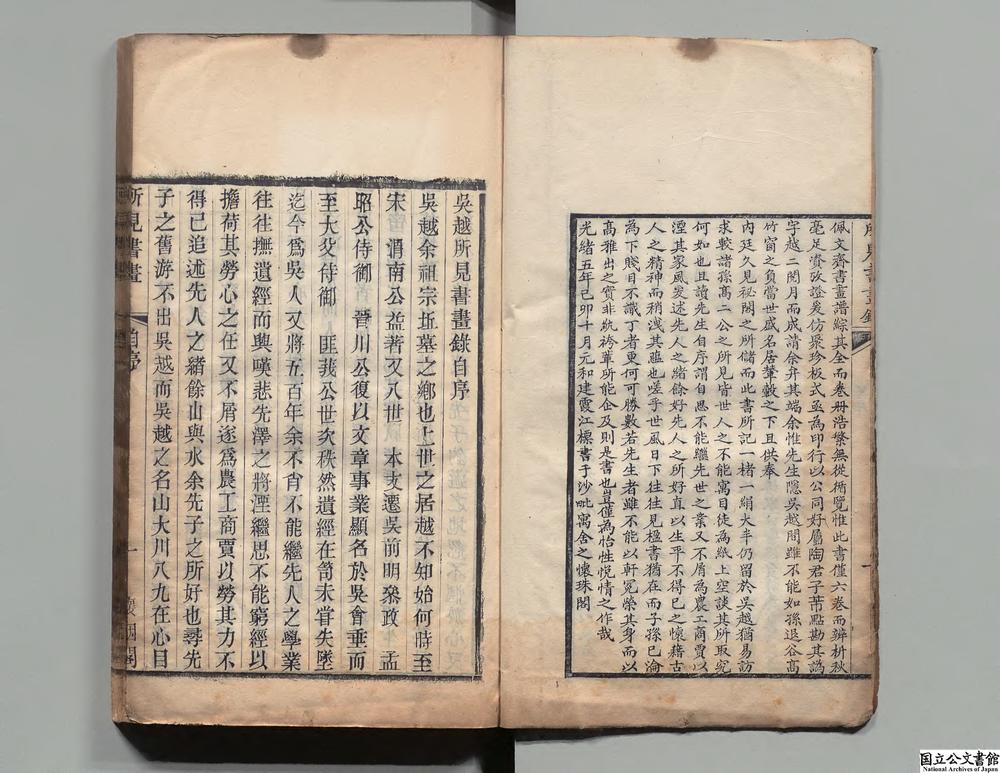 佩文齋書畫譜綜其全而卷冊浩繁無從循覽惟此書僅六卷而辨析秋
毫足資攷證爰仿聚珍板式亟為印行以公同好屬陶君子芾點勘其譌
字越二閱月而成請余弁其端余惟先生隱吳越間雖不能如孫退谷高
竹窗之負當世盛名居輦轂之下且供奉
內廷久見祕閣之所儲而此書所記一楮一絹大半仍留於吳越猶易訪
求較諸孫高二公之所見皆世人之不能寓目徒為紙上空談其所取究
何如也且讀先生自序謂自恩不能繼先世之業又不屑為農工商賈以
湮其家風爰述先人之緒餘好先人之所好直以生平不得已之懷藉古
人之精神而稍洩其藴也嗟乎世風日下往往見楹書猶在而子孫已淪
為下賤目不識丁者更何可勝數若先生者雖不能以軒冕榮其身而以
高雅出之實非紈袴輩所能企及則是書也豈僅為怡性悅情之作哉
光緒五年己卯十月元和建霞江標書于沙吡寓舍之懷珠閣
吳越所見書畫錄自序
吳越余祖宗坵墓之鄉也上世之居越不知始何時至
宋 渭南公益著又八世 本支遷吳前明叅政 孟
昭公侍御 晉川公復以文章事業顯名於吳會垂而
至大父侍御 匪莪公世次秩然遺經在笥未嘗失墜
迄今為吳人又將五百年余不肖不能繼先人之學業
往往撫遺經而興嘆悲先澤之將湮繼思不能窮經以
擔荷其勞心之任又不屑逐為農工商賈以勞其力不
得已追述先人之緒餘山與水余先子之所好也尋先
子之舊游不出吳越而吳越之名山大川八九在心目
所見書畫 自序 一 懷烟閣
国立公文書館
National Archives of Japan